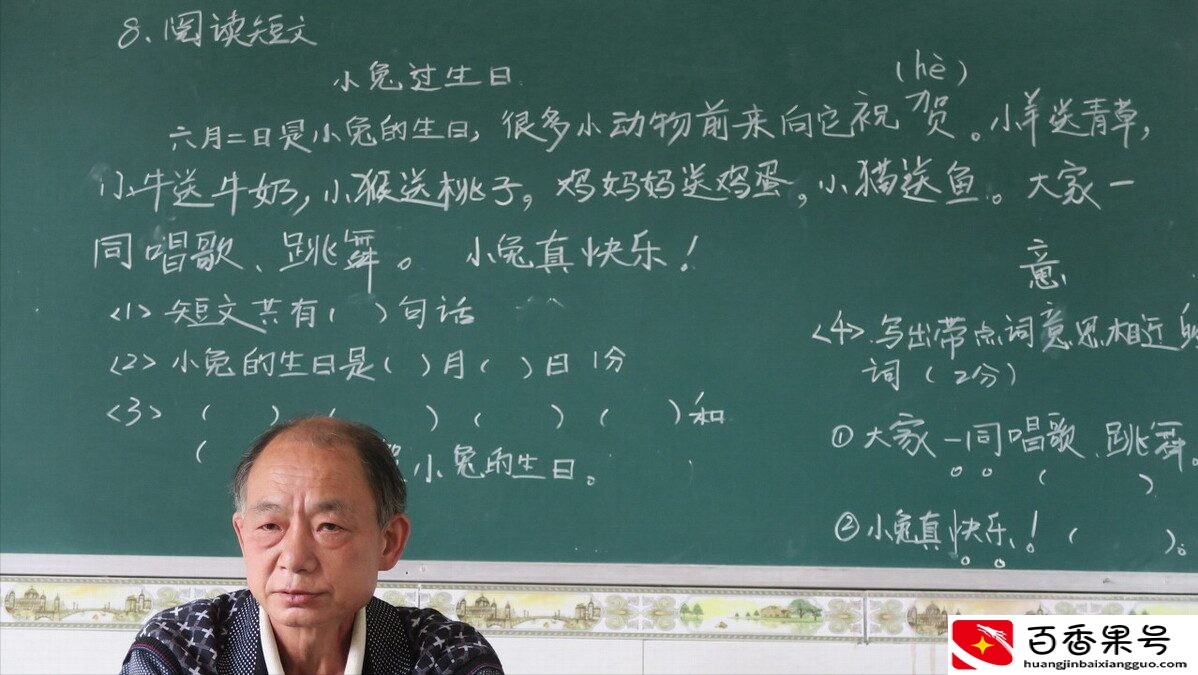 8、阅读短文
小兔过生日
(hè)
六月二日是小兔的生日，很多小动物前来向它祝贺。小羊送青草，
小牛送牛奶，小猴送桃子。鸡妈妈送鸡蛋，小猫送鱼。大家一
同唱歌、跳舞。小兔真快乐！
<1> 短文共有( )句话
<2> 小兔的生日是( )月( )日 1分
<3> ( ) ( ) ( ) ( )和
( 小兔的生日。
意
<4>.写出带点词意思相近的
词(2分)
①大家一同唱歌、跳舞。
( )
②小兔真快乐！( )。
百香果号
huangjinbaixiangguo.com